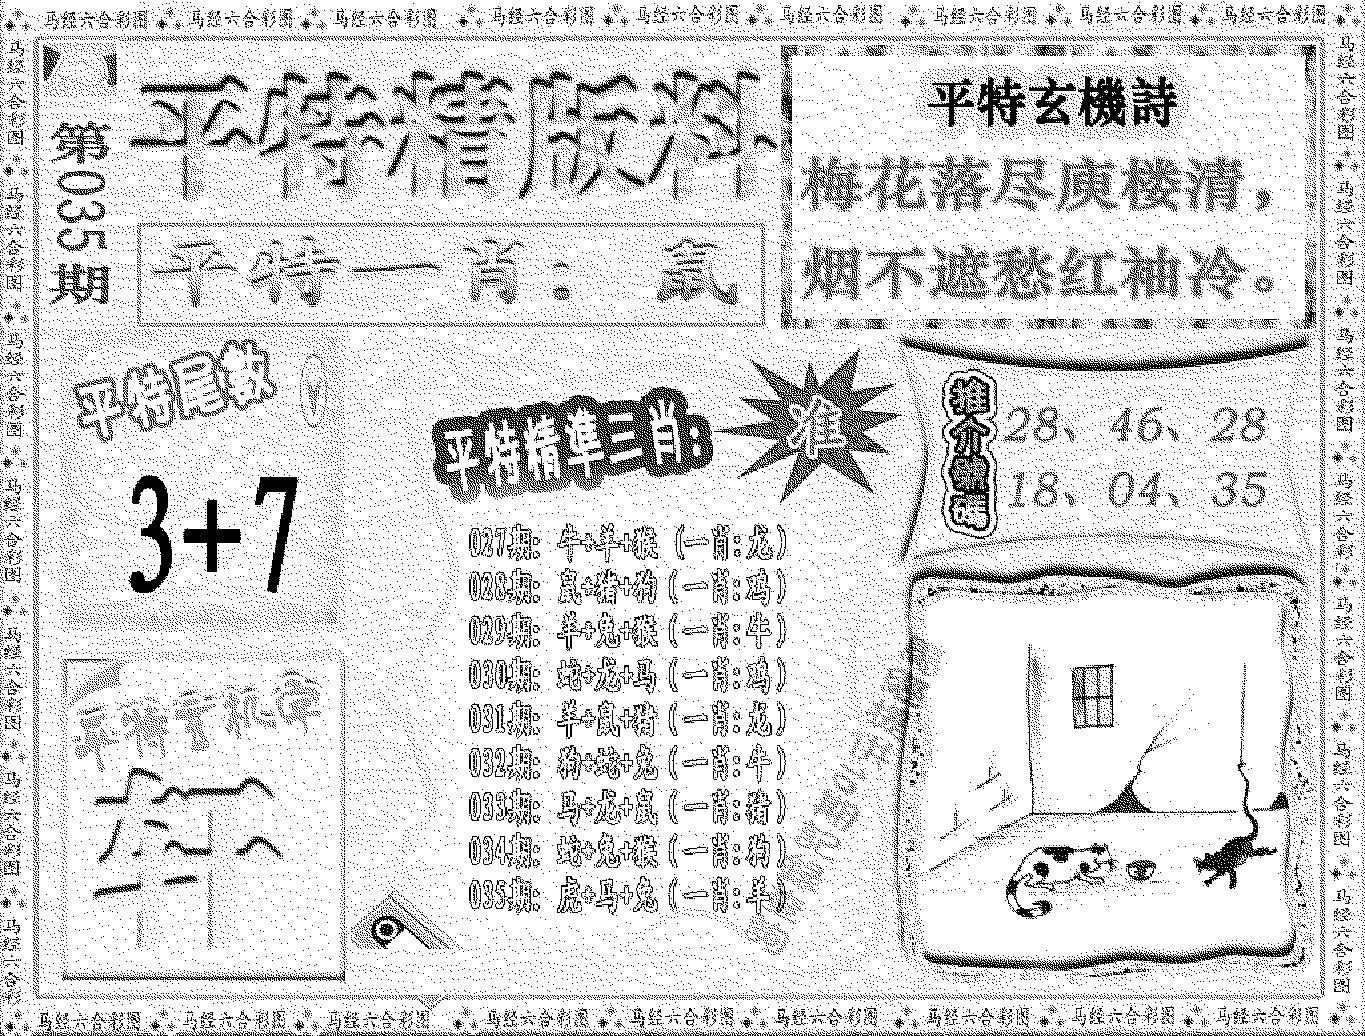 马经六合彩图 马经六合彩图 马经六合彩图 马经六合彩图 马经六合彩图 马经六合彩图 马经六合彩图 马经六合彩图 马经六合彩图
第035期
平特精版料
平特一肖：鼠
平特玄機詩
梅花落尽庾楼清，
烟不遮愁红袖冷。
平特尾数
3+7
平特精準三肖:
准
027期: 牛+羊+猴（一肖:龙）
028期: 鼠+猪+狗（一肖:鸡）
029期: 羊+兔+猴（一肖:牛）
030期: 蛇+龙+马（一肖:鸡）
031期: 羊+鼠+猪（一肖:龙）
032期: 狗+蛇+兔（一肖:牛）
033期: 马+龙+鼠（一肖:猪）
034期: 蛇+兔+猴（一肖:狗）
035期: 虎+马+兔（一肖:羊）
28、46、28
18、04、35
平特玄机字
马经六合彩图 马经六合彩图 马经六合彩图 马经六合彩图 马经六合彩图 马经六合彩图 马经六合彩图 马经六合彩图 马经六合彩图